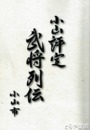 小山評定
武将列伝
小山市